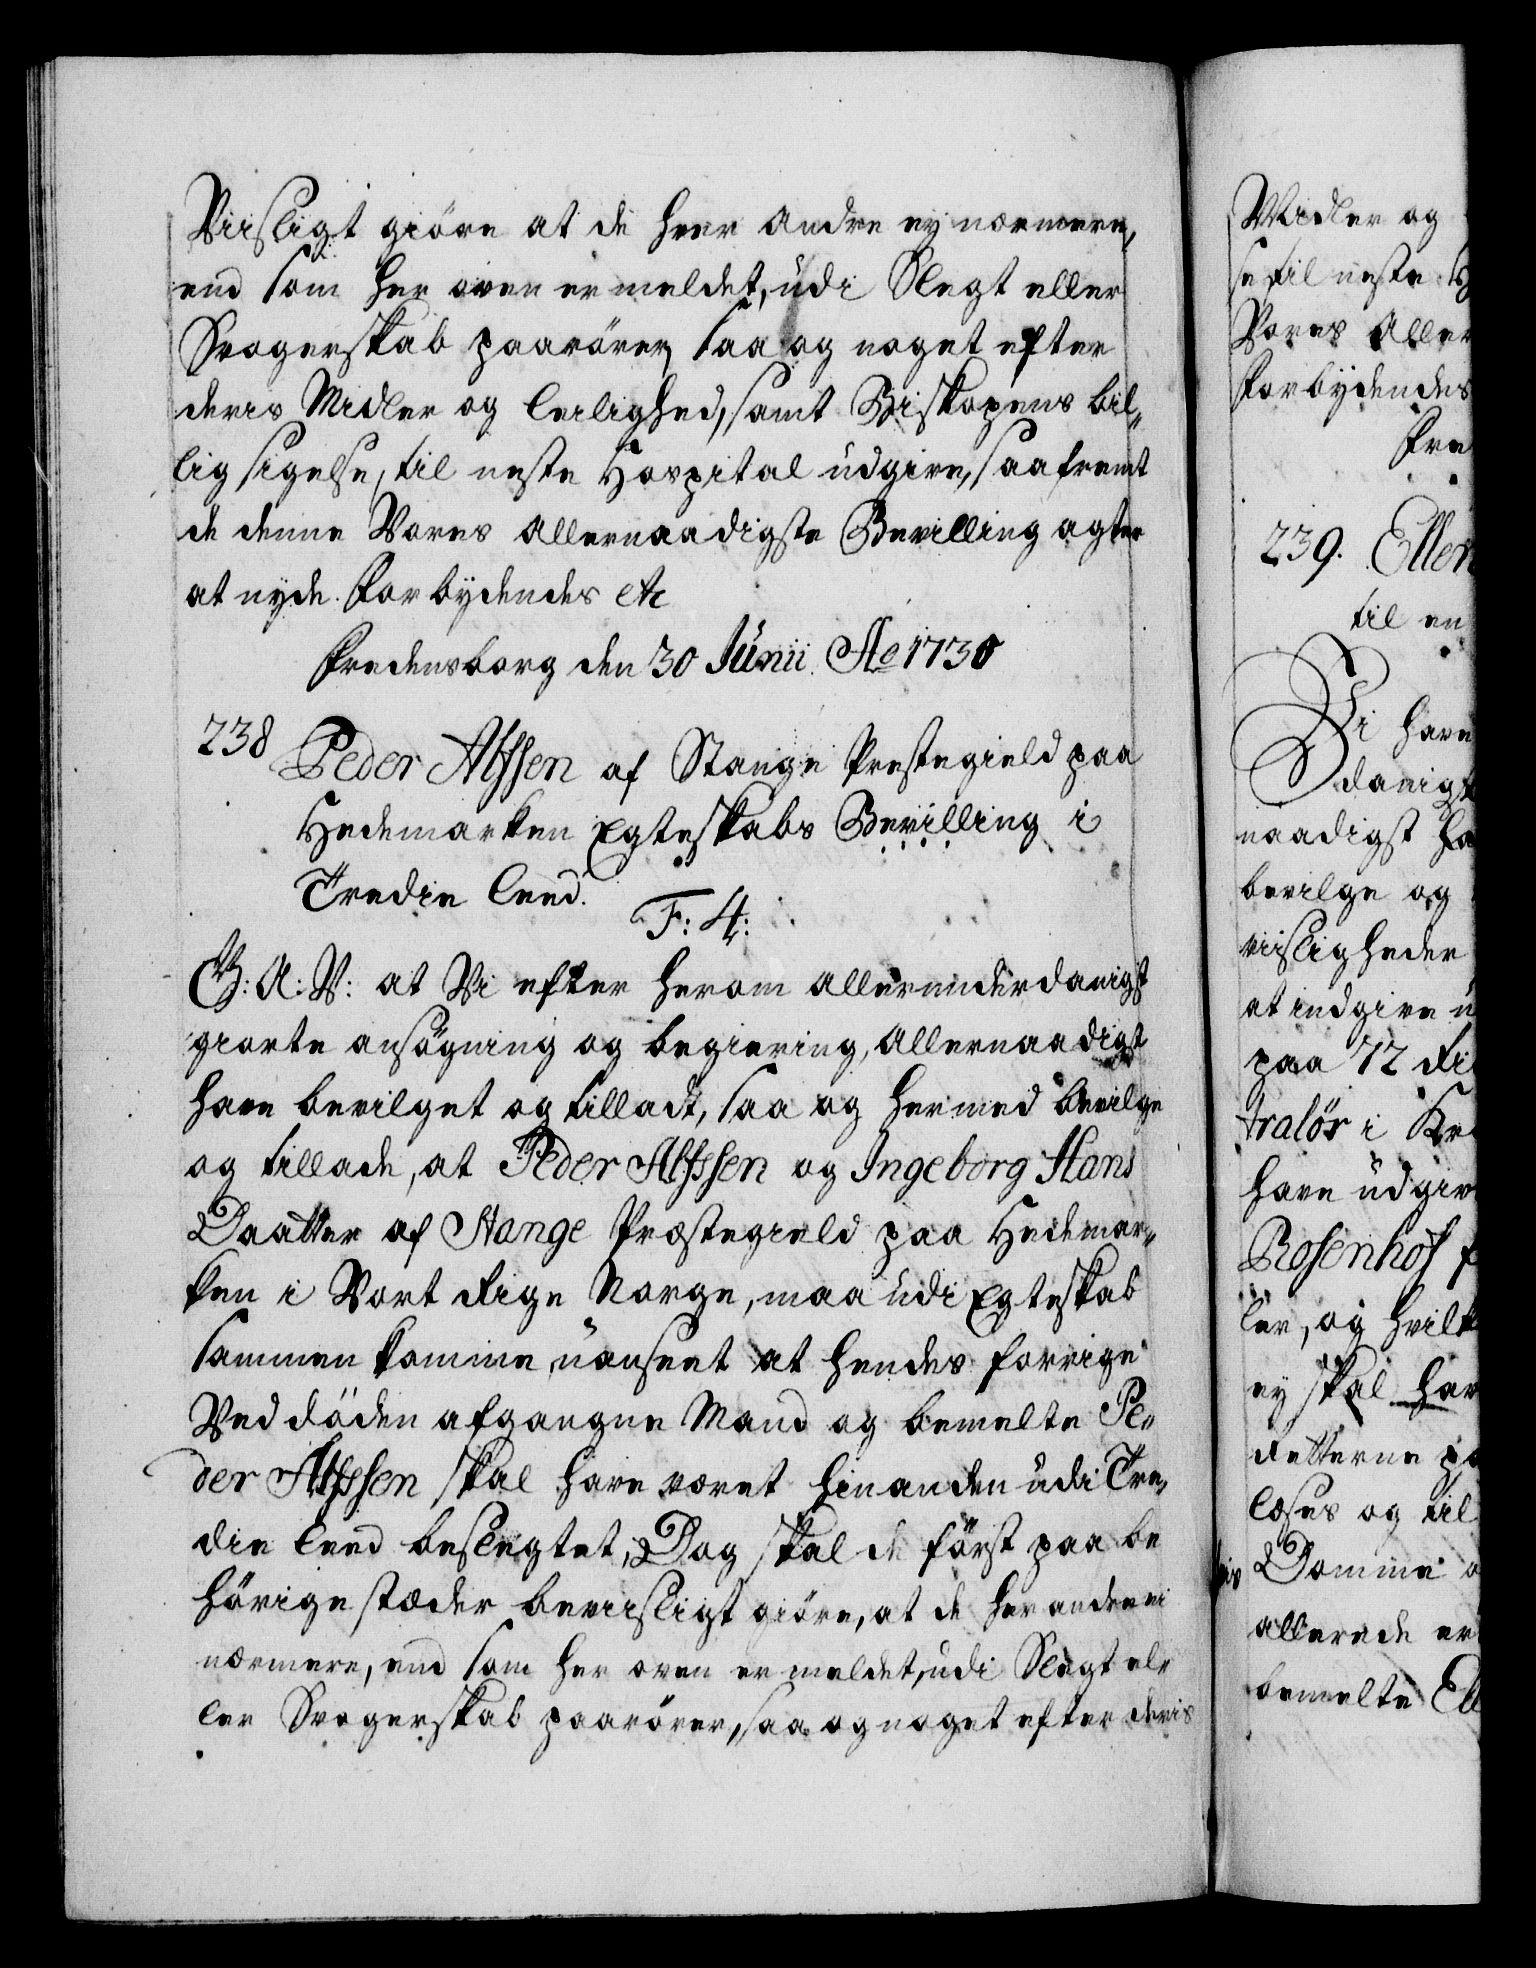 Viisligt giöre at de hver andre ey nærmere,
end som her oven er meldet, udi Slegt eller
Svogerskab paarörer, saa og noget efter
deris Midler og Leilighed, samt Biskopens bil„
lig sigelse, til neste Hospital udgive, saa fremt
de denne Vores allernaadigste Bevilling agter
at nyde. Forbydendes etc
Fredensborg den 30 Junii Ao 1730
238
Peder Alfssen af Stange Prestegield paa
Hedemarken Egteskabs Bevilling i
Tredie Leed.
F: 4:
G: A: V: at Vi efter herom allerunderdanigst
giorte ansögning og begiering, allernaadigst
have bevilget og tilladt, saa og hermed bevilge
og tillade, at Peder Alfssen og Ingeborg Hans
Daatter af Stange Præstegield paa Hedemar„
ken i Vort Rige Norge, maa udi Egteskab
sammen komme, uanseet at hendes forrige
Ved döden afgangne Mand og bemelte Pe„
der Alfssen skal have været hinanden udi Tre„
die Leed beslegtet, Dog skal de först paa be
hörige stæder bevisligt giöre, at de hver andre ei
nærmere, end som her oven er meldet, udi Slegt el„
ler Svogerskab paarörer, saa og noget efter deris
Midler og
se til neste H
Vores Aller
Forbydendes
Fre
239. Ellen
til en
Vi have
danigst
naadigst ha
bevilge og
viisligheder
at indgive u
paa 72 Ri
tralör i Kr
have udgiv
Rosenhof f
ler, og hvilk
ey skal har
Retterne pa
læses og til
Domme o
allerede er
bemelte Ell